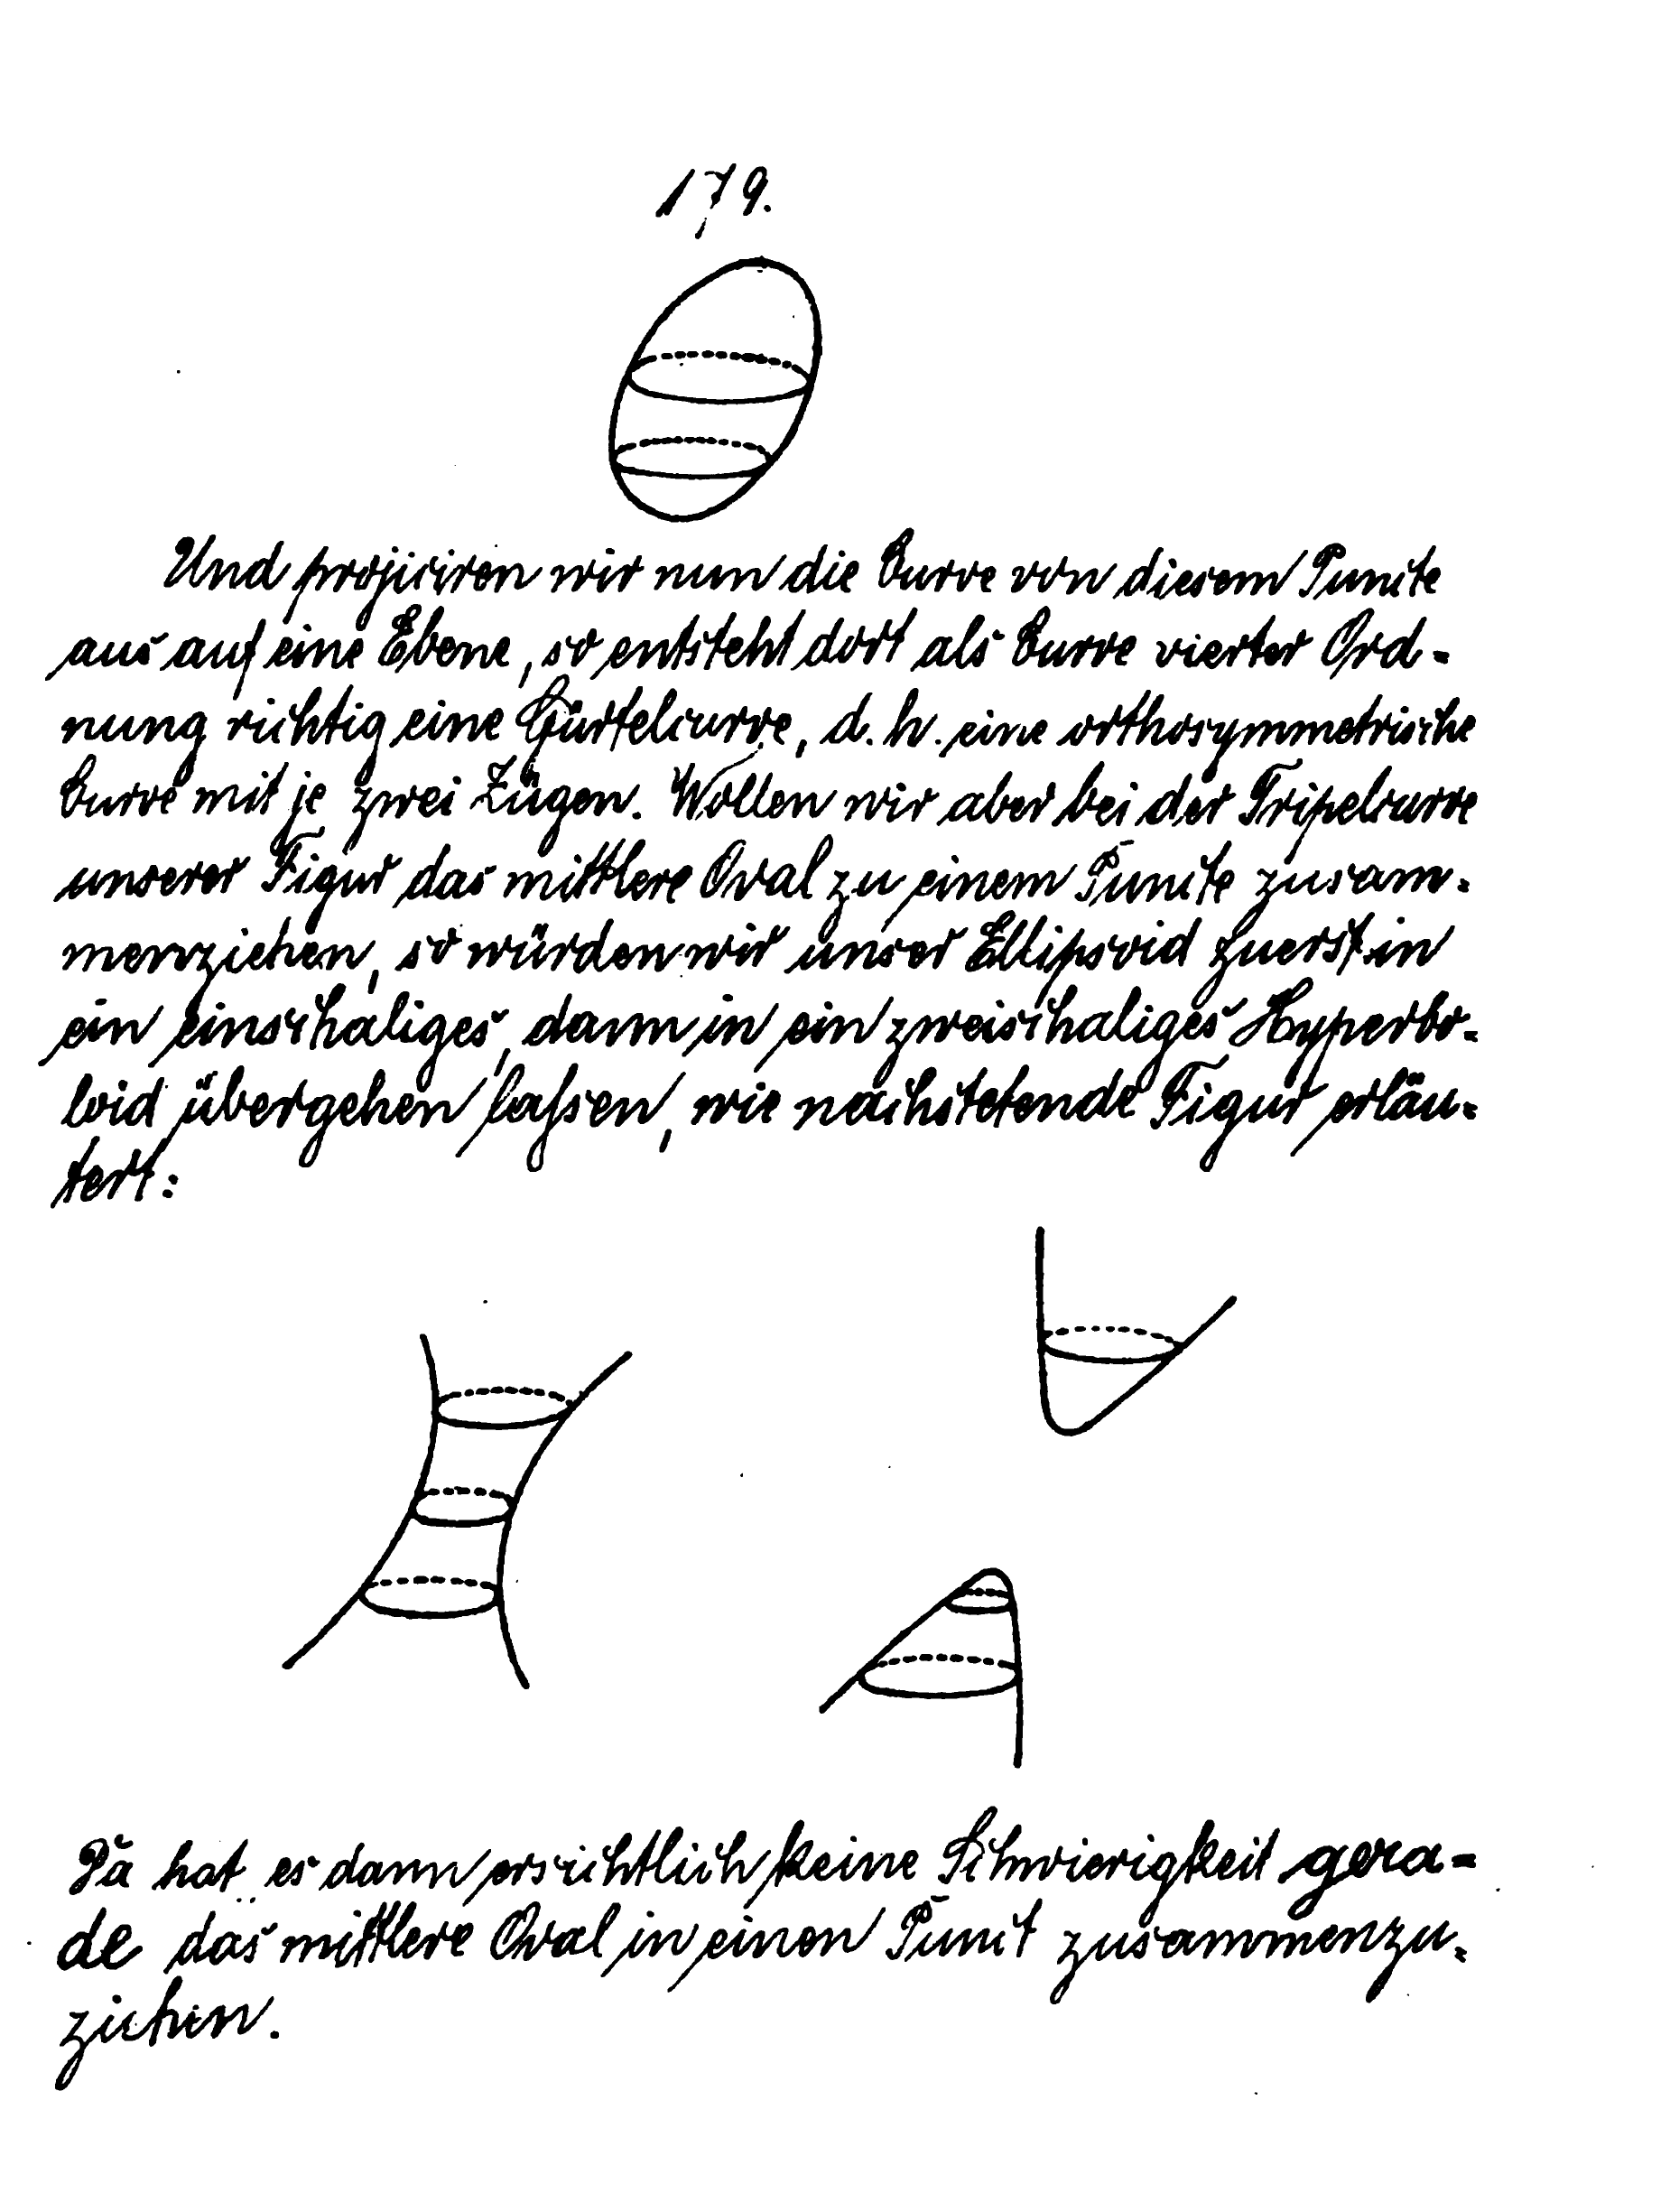 179.
Und projiciren wir nun die Curve von diesem Puncte
aus auf eine Ebene, so entsteht dort als Curve vierter Ord-
nung richtig eine Gürtelcurve, d. h. eine orthosymmetrische
Curve mit je zwei Zügen. Wollen wir aber bei der Tripelcurve
unserer Figur das mittlere Oval zu einem Puncte zusam-
menziehen, so würden wir unser Ellipsoid zuerst in
ein einschaliges, dann in ein zweischaliges Hyperbo-
loid übergehen laßen, wie nachstetende Figur erläu-
tert:
Da hat es dann ersichtlich keine Schwierigkeit gera-
de das mittlere Oval in einen Punct zusammenzu-
ziehen.